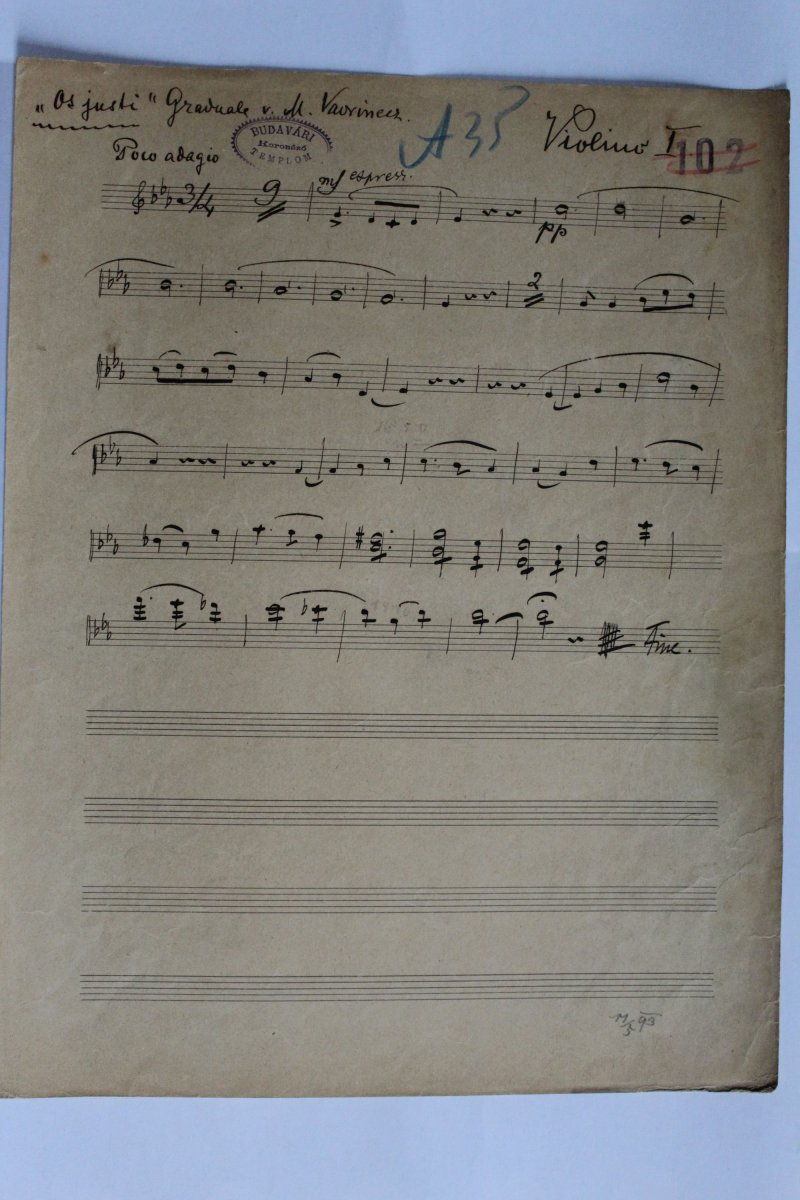 „Os justi“ Graduale v. M. Vavrinecz.
A 35
Violino I
102
Poco adagio
BUDAVÁRI
Koronázó
TEMPLOM
mf espress.
3/4
9
pp
2
Fine.